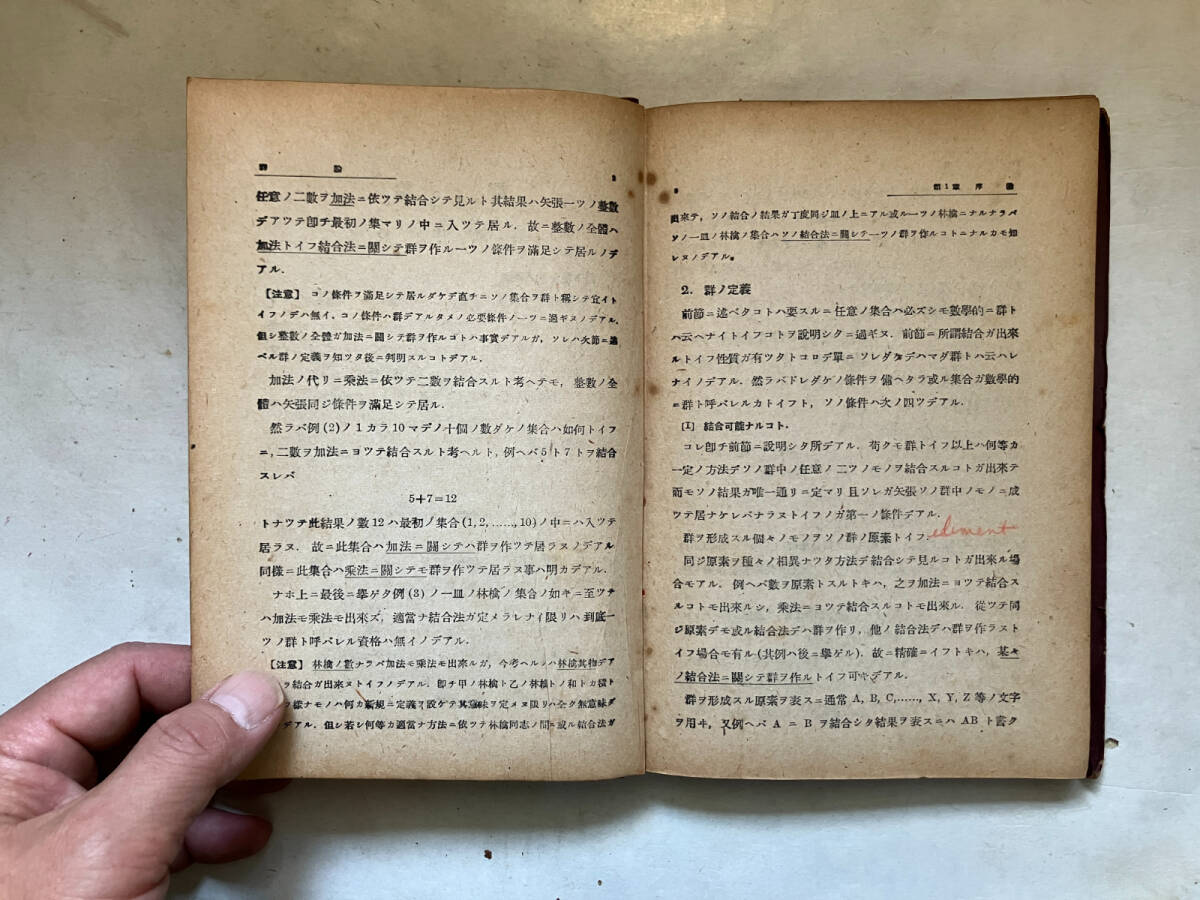 群論
任意ノ二數ヲ加法ニ依ツテ結合シテ見ルト其結果ハ矢張一ツノ整數
デアツテ卽チ最初ノ集マリノ中ニ入ツテ居ル．故ニ整數ノ全體ハ
加法トイフ結合法ニ關シテ群ヲ作ル一ツノ條件ヲ滿足シテ居ルノデ
アル．
【注意】 コノ條件ヲ滿足シテ居ルダケデ直チニソノ集合ヲ群ト稱シテ宜イト
イフノデハ無イ、コノ條件ハ群デアルタメノ必要條件ノ一ツニ過ギヌノデアル．
但シ整數ノ全體ガ加法ニ關シテ群ヲ作ルコトハ事實デアルガ，ソレハ次節ニ述
ベル群ノ定義ヲ知ツタ後ニ判明スルコトデアル．
加法ノ代リニ乘法ニ依ツテ二數ヲ結合スルト考ヘテモ，整數ノ全
體ハ矢張同ジ條件ヲ滿足シテ居ル．
然ラバ例 (2) ノ 1 カラ 10 マデノ十個ノ數ダケノ集合ハ如何トイフ
ニ，二數ヲ加法ニヨツテ結合スルト考ヘルト，例ヘバ 5 ト 7 トヲ結合
スレバ
5+7=12
トナツテ此結果ノ數 12 ハ最初ノ集合 (1, 2, ……, 10) ノ中ニハ入ツテ
居ラヌ．故ニ此集合ハ加法ニ關シテハ群ヲ作ツテ居ラヌノデアル．
同樣ニ此集合ハ乘法ニ關シテモ群ヲ作ツテ居ラヌ事ハ明カデアル．
ナホ上ニ最後ニ擧ゲタ例 (3) ノ一皿ノ林檎ノ集合ノ如キニ至ツテ
ハ加法モ乘法モ出來ズ，適當ナ結合法ガ定メラレナイ限リハ到底一
ツノ群ト呼バレル資格ハ無イノデアル．
【注意】 林檎ノ數ナラバ加法モ乘法モ出來ルガ，今考ヘルノハ林檎其物デア
ラ結合ガ出來ヌトイフノデアル．卽チ甲ノ林檎ト乙ノ林檎トノ和トカ積ト
樣ナモノハ何カ新規ニ定義ヲ設ケテ其意味ヲ定メヌ限リハ全ク無意味デ
デアル．但シ若シ何等カ適當ナ方法ニ依ツテ林檎同志ノ間ニ或ル結合法ガ
第1章 序論
出來テ，ソノ結合ノ結果ガ丁度同ジ皿ノ上ニアル或ル一ツノ林檎ニナルナラバ
ソノ一皿ノ林檎ノ集合ハソノ結合法ニ關シテ一ツノ群ヲ作ルコトニナルカモ知
レヌノデアル。
2. 群ノ定義
前節ニ述ベタコトハ要スルニ任意ノ集合ハ必ズシモ數學的ニ群ト
ハ云ヘナイトイフコトヲ說明シタニ過ギヌ．前節ニ所謂結合ガ出來
ルトイフ性質ガ有ツタトコロデ單ニソレダケデハマダ群トハ云ハレ
ナイノデアル．然ラバドレダケノ條件ヲ備ヘタラ或ル集合ガ數學的
ニ群ト呼バレルカトイフト，ソノ條件ハ次ノ四ツデアル．
[I] 結合可能ナルコト．
コレ卽チ前節ニ說明シタ所デアル．苟クモ群トイフ以上ハ何等カ
一定ノ方法デソノ群中ノ任意ノ二ツノモノヲ結合スルコトガ出來テ
而モソノ結果ガ唯一通リニ定マリ且ソレガ矢張ソノ群中ノモノニ成
ツテ居ナケレバナラヌトイフノガ第一ノ條件デアル．
群ヲ形成スル個々ノモノヲソノ群ノ原素トイフ． element
同ジ原素ヲ種々ノ相異ナツタ方法デ結合シテ見ルコトガ出來ル場
合モアル．例ヘバ數ヲ原素トスルトキハ，之ヲ加法ニヨツテ結合ス
ルコトモ出來ルシ，乘法ニヨツテ結合スルコトモ出來ル．從ツテ同
ジ原素デモ或ル結合法デハ群ヲ作リ，他ノ結合法デハ群ヲ作ラヌト
イフ場合モ有ル (其例ハ後ニ擧ゲル)．故ニ精確ニイフトキハ，某々
ノ結合法ニ關シテ群ヲ作ルトイフ可キデアル．
群ヲ形成スル原素ヲ表スニ通常 A, B, C, ……, X, Y, Z 等ノ文字
ヲ用ヰ，又例ヘバ A ニ B ヲ結合シタ結果ヲ表スニハ AB ト書ク